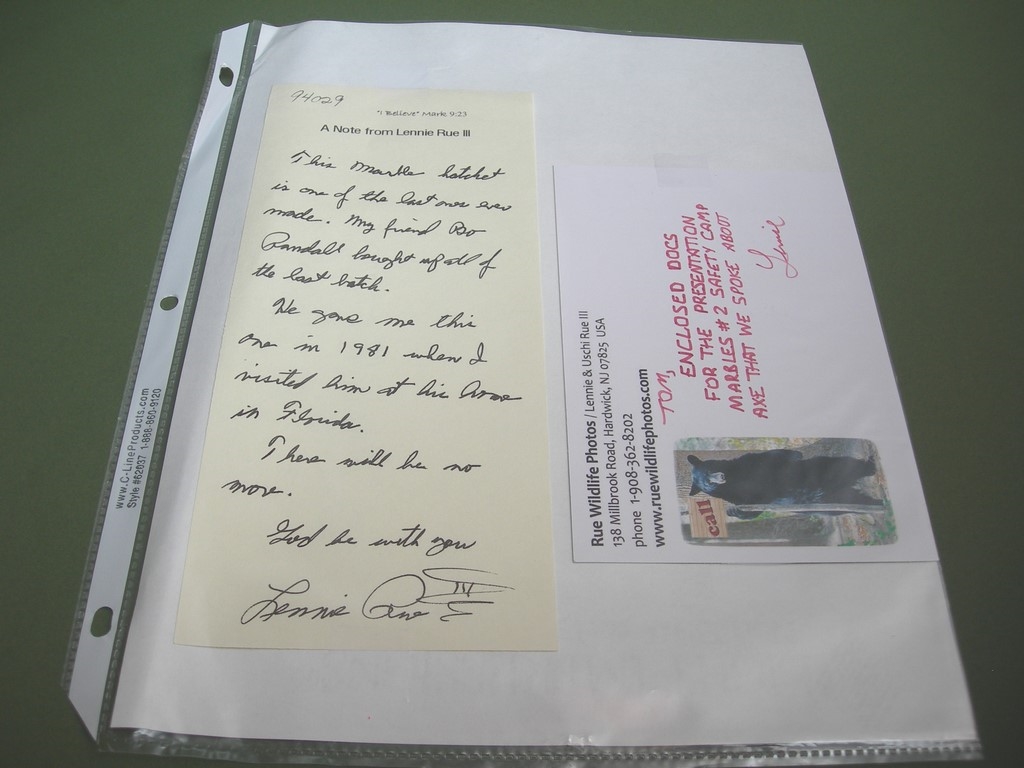 94029
"I Believe" Mark 9:23
A Note from Lennie Rue III
This Marble hatchet
is one of the last ones ever
made. My friend Bo
Randall bought up all of
the last batch.
He gave me this
one in 1981 when I
visited him at his home
in Florida.
There will be no
more.
God be with you
Lennie Rue III
TOM,
ENCLOSED DOCS
FOR THE PRESENTATION
MARBLES #2 SAFETY CAMP
AXE THAT WE SPOKE ABOUT
Lennie
Rue Wildlife Photos / Lennie & Uschi Rue III
138 Millbrook Road, Hardwick, NJ 07825 USA
phone 1-908-362-8202
www.ruewildlifephotos.com
call
www.C-LineProducts.com
Style #62037 1-888-860-9120